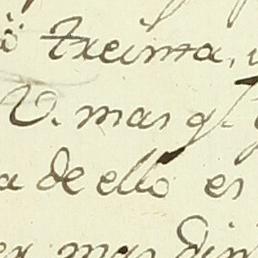 treinta,
V. mas q.
a de ello es
er mas din